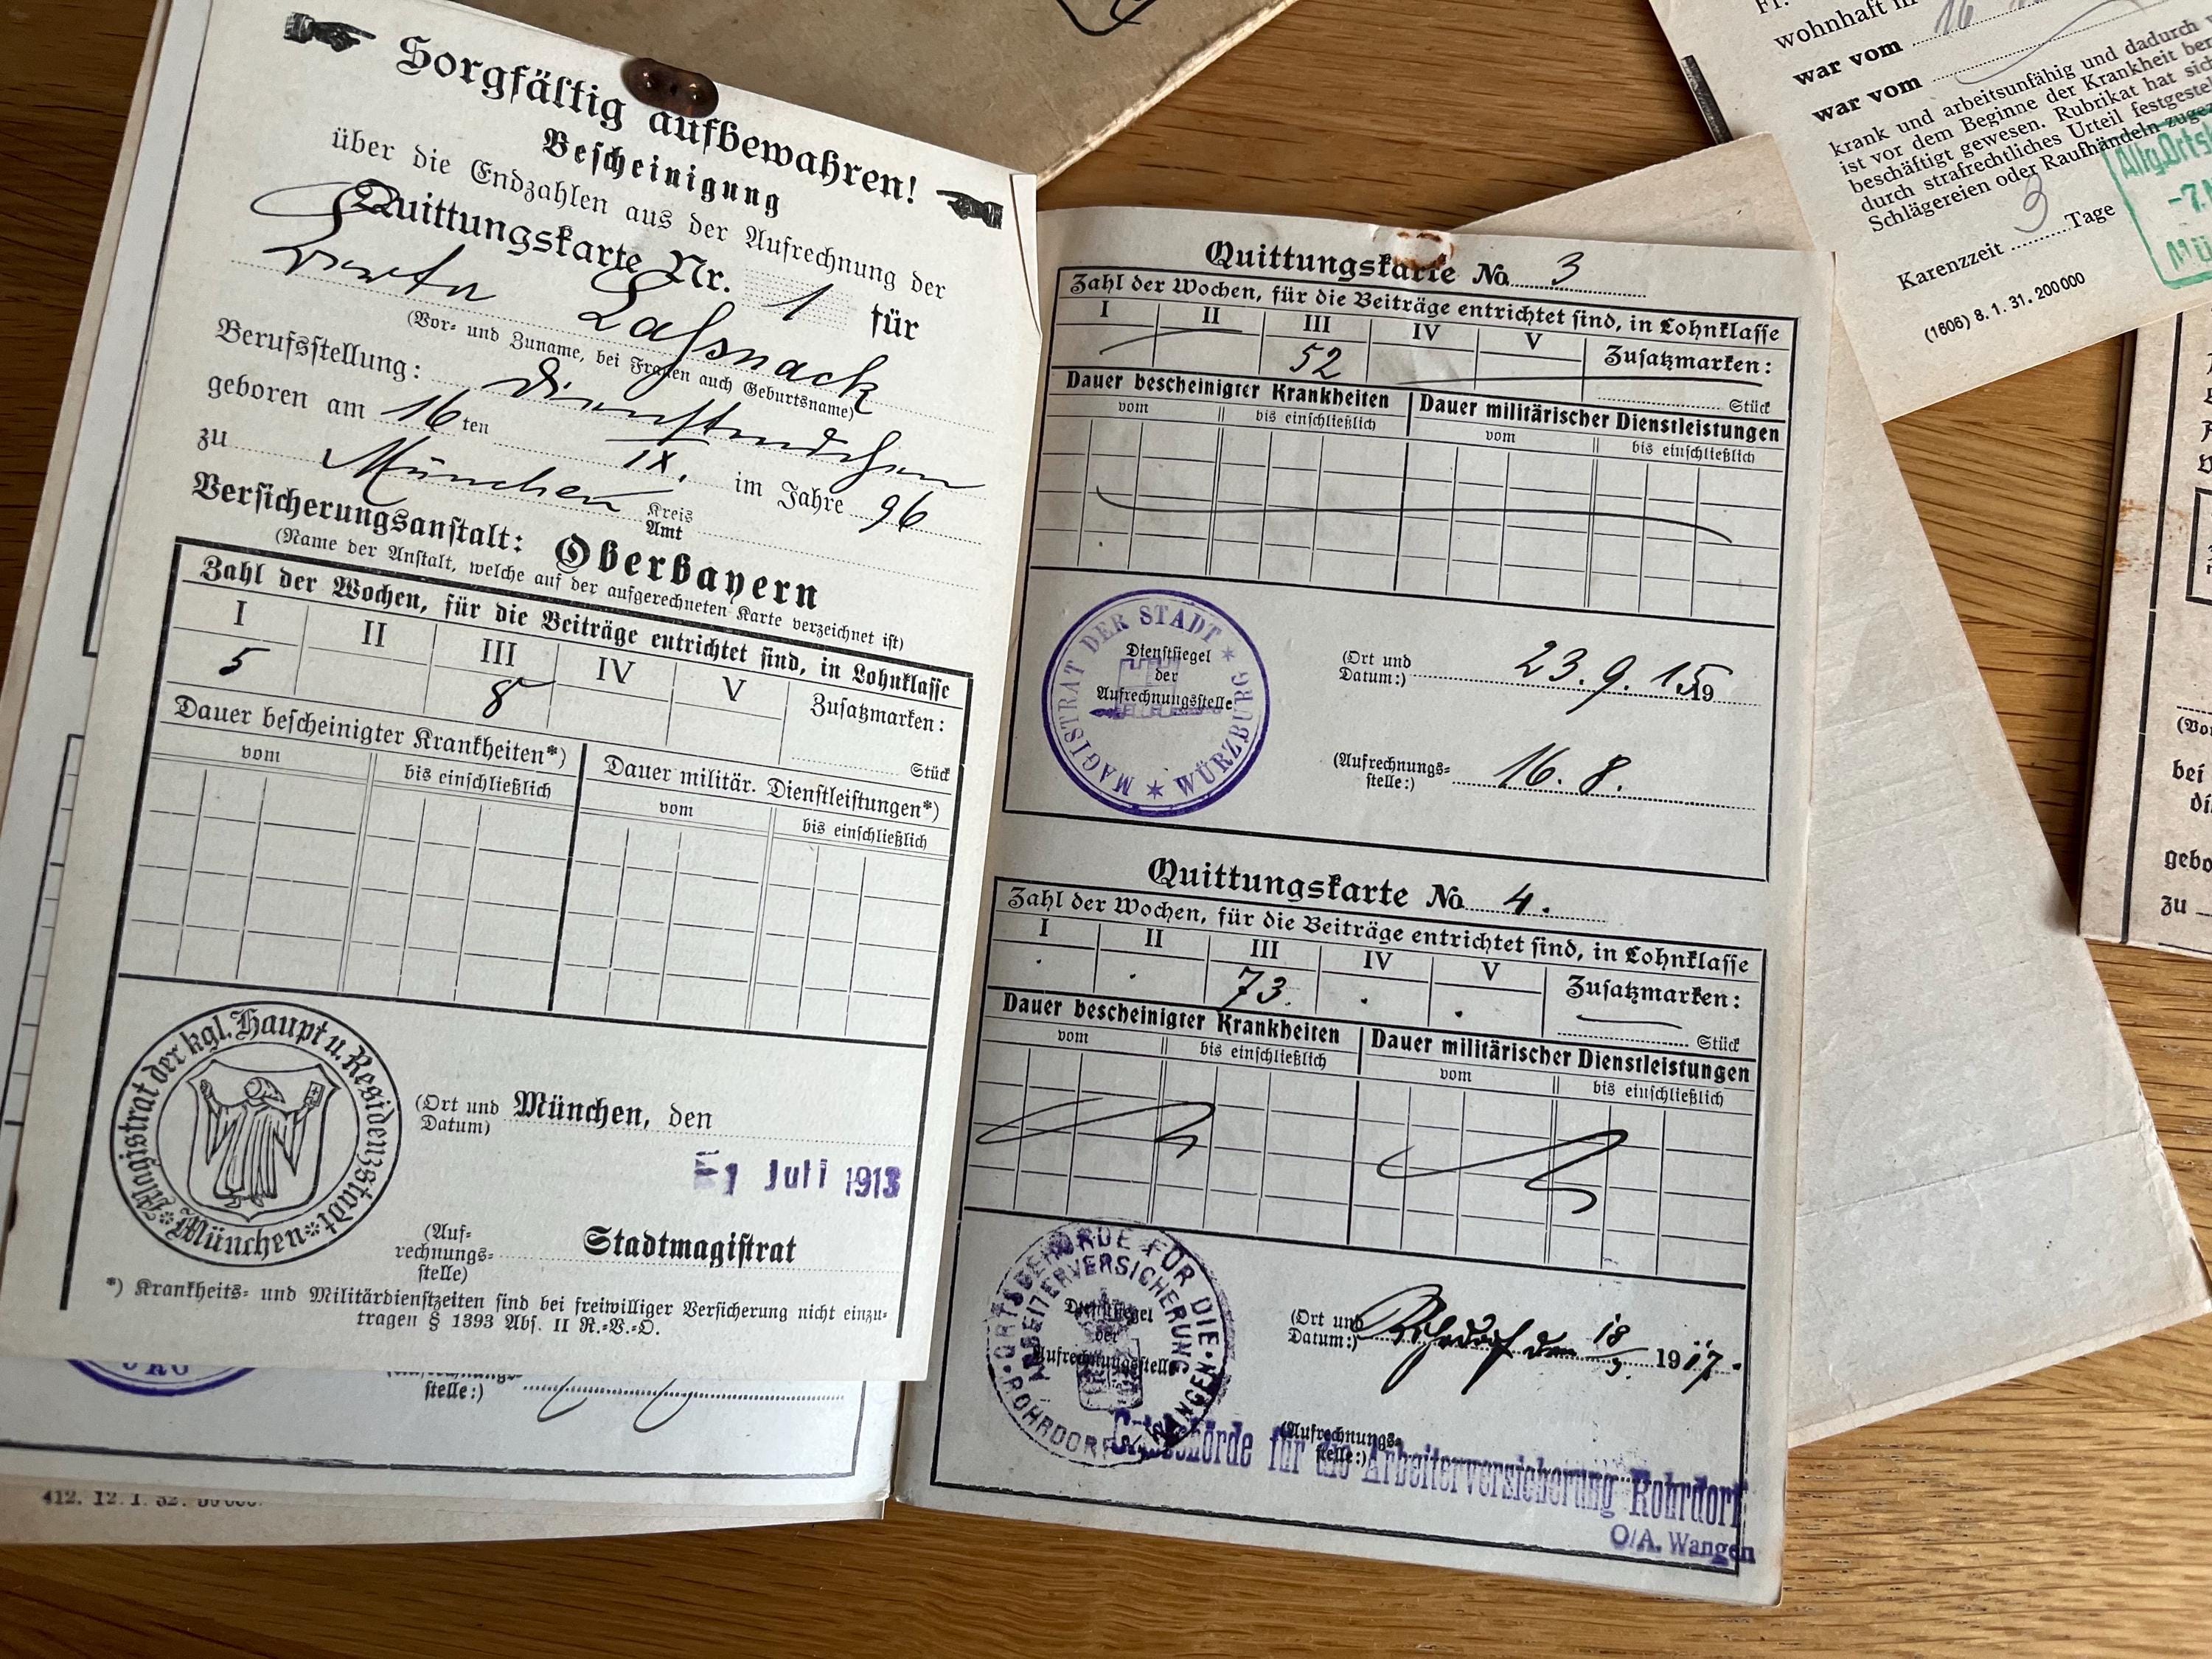 Sorgfältig aufbewahren!
Bescheinigung
über die Endzahlen aus der Aufrechnung der
Quittungskarte Nr. 1 für
Laßnack
(Vor- und Zuname, bei Frauen auch Geburtsname)
Berufsstellung: Dienstmädchen
geboren am 16ten IX. im Jahre 96
zu München Kreis
Amt
Versicherungsanstalt: Oberbayern
(Name der Anstalt, welche auf der aufgerechneten Karte verzeichnet ist)
Zahl der Wochen, für die Beiträge entrichtet sind, in Lohnklasse
I II III IV V Zusatzmarken:
5 8 Stück
Dauer bescheinigter Krankheiten*) Dauer militär. Dienstleistungen*)
vom bis einschließlich vom bis einschließlich
Magistrat der kgl. Haupt u. Residenzstadt
München
(Ort und
Datum) München, den
1 Juli 1913
(Auf-
rechnungs-
stelle) Stadtmagistrat
*) Krankheits- und Militärdienstzeiten sind bei freiwilliger Versicherung nicht einzu-
tragen § 1393 Abs. II R.-V.-O.
stelle:)
412. 12. 1. 32.
Quittungskarte No 3
Zahl der Wochen, für die Beiträge entrichtet sind, in Lohnklasse
I II III IV V Zusatzmarken:
52 Stück
Dauer bescheinigter Krankheiten Dauer militärischer Dienstleistungen
vom bis einschließlich vom bis einschließlich
MAGISTRAT DER STADT
WÜRZBURG
Dienstsiegel
der
Aufrechnungsstelle
(Ort und
Datum:) 23. 9. 15 19
(Aufrechnungs-
stelle:) 16. 8.
Quittungskarte No 4.
Zahl der Wochen, für die Beiträge entrichtet sind, in Lohnklasse
I II III IV V Zusatzmarken:
73. Stück
Dauer bescheinigter Krankheiten Dauer militärischer Dienstleistungen
vom bis einschließlich vom bis einschließlich
ORTSBEHÖRDE FÜR DIE
ARBEITERVERSICHERUNG
ROHRDORF WANGEN
Dienstsiegel
der
Aufrechnungsstelle
(Ort und
Datum:) Rohrdorf den 18/3. 1917.
(Aufrechnungs-
stelle:)
Ortsbehörde für die Arbeiterversicherung Rohrdorf
O/A. Wangen
wohnhaft in
war vom 16
war vom
krank und arbeitsunfähig und dadurch
ist vor dem Beginne der Krankheit
beschäftigt gewesen. Rubrikat hat sich
durch strafrechtliches Urteil
Schlägereien oder Raufhändeln
Allg. Orts
-7.
MÜ
Karenzzeit 3 Tage
(1606) 8. 1. 31. 200 000
bei
zu